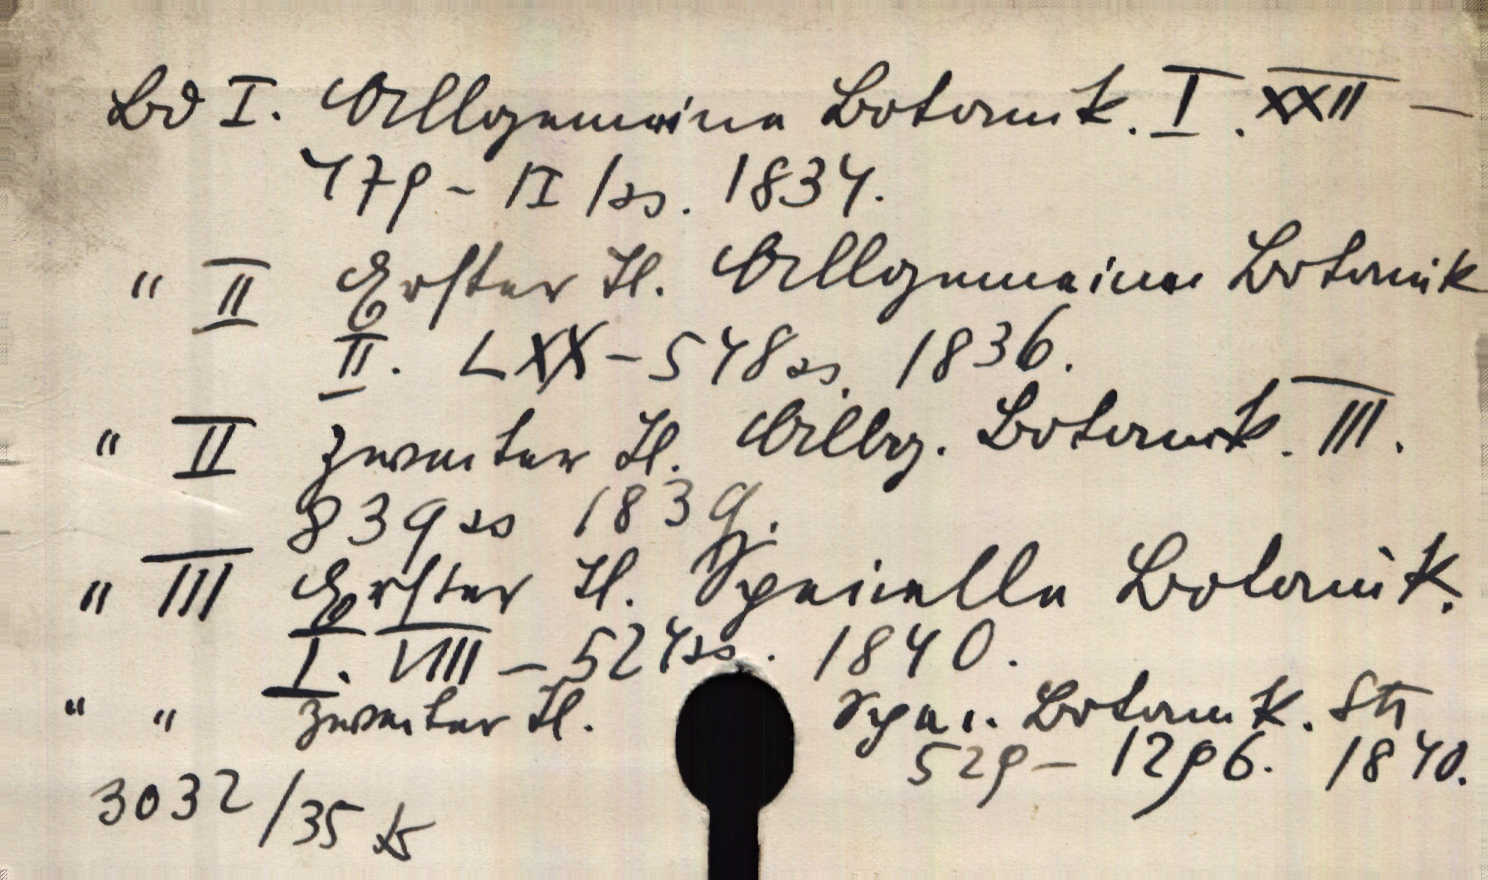 Bd I. Allgemeine Botanik. I. XXII —
479 - II ss. 1834.
" II Erster Tl. Allgemeine Botanik
II. LXX - 548 ss. 1836.
" II zweiter Tl. Allg. Botanik. III.
839 ss 1839.
" III Erster Tl. Specielle Botanik.
I. VIII - 524 ss. 1840.
" " zweiter Tl. Spec. Botanik. Stn
529 - 1296. 1840.
3032/35